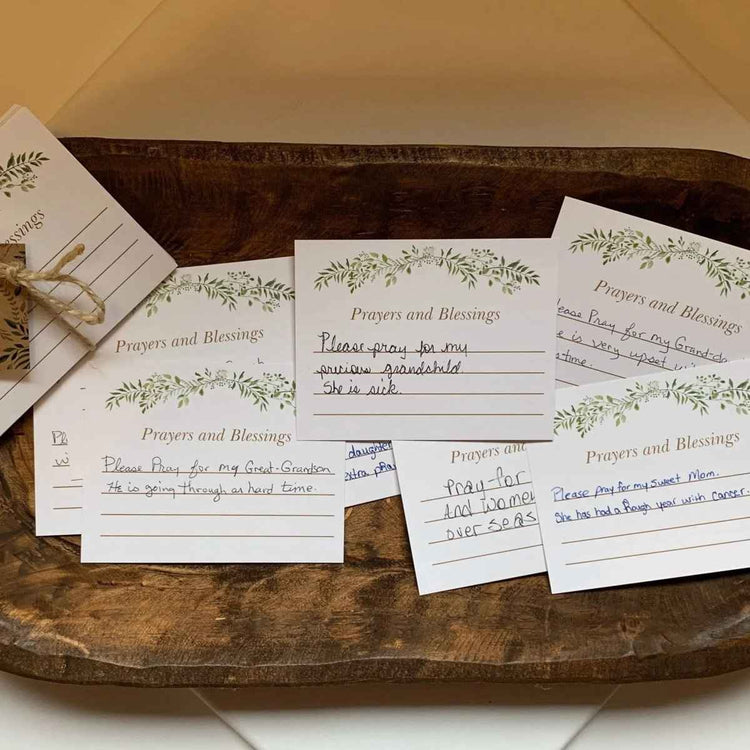 essings
Prayers and Blessings
Pl
w
Prayers and Blessings
Please Pray for my Great-Grandson
He is going through as hard time.
Prayers and Blessings
Please pray for my
precious grandchild.
She is sick.
daughter
extra pra
Prayers and
Pray for
And women
over seas
Prayers and Blessings
ease Pray for my Grand-d
e is very upset w
time.
Prayers and Blessings
Please pray for my sweet Mom.
She has had a though year with cancer.